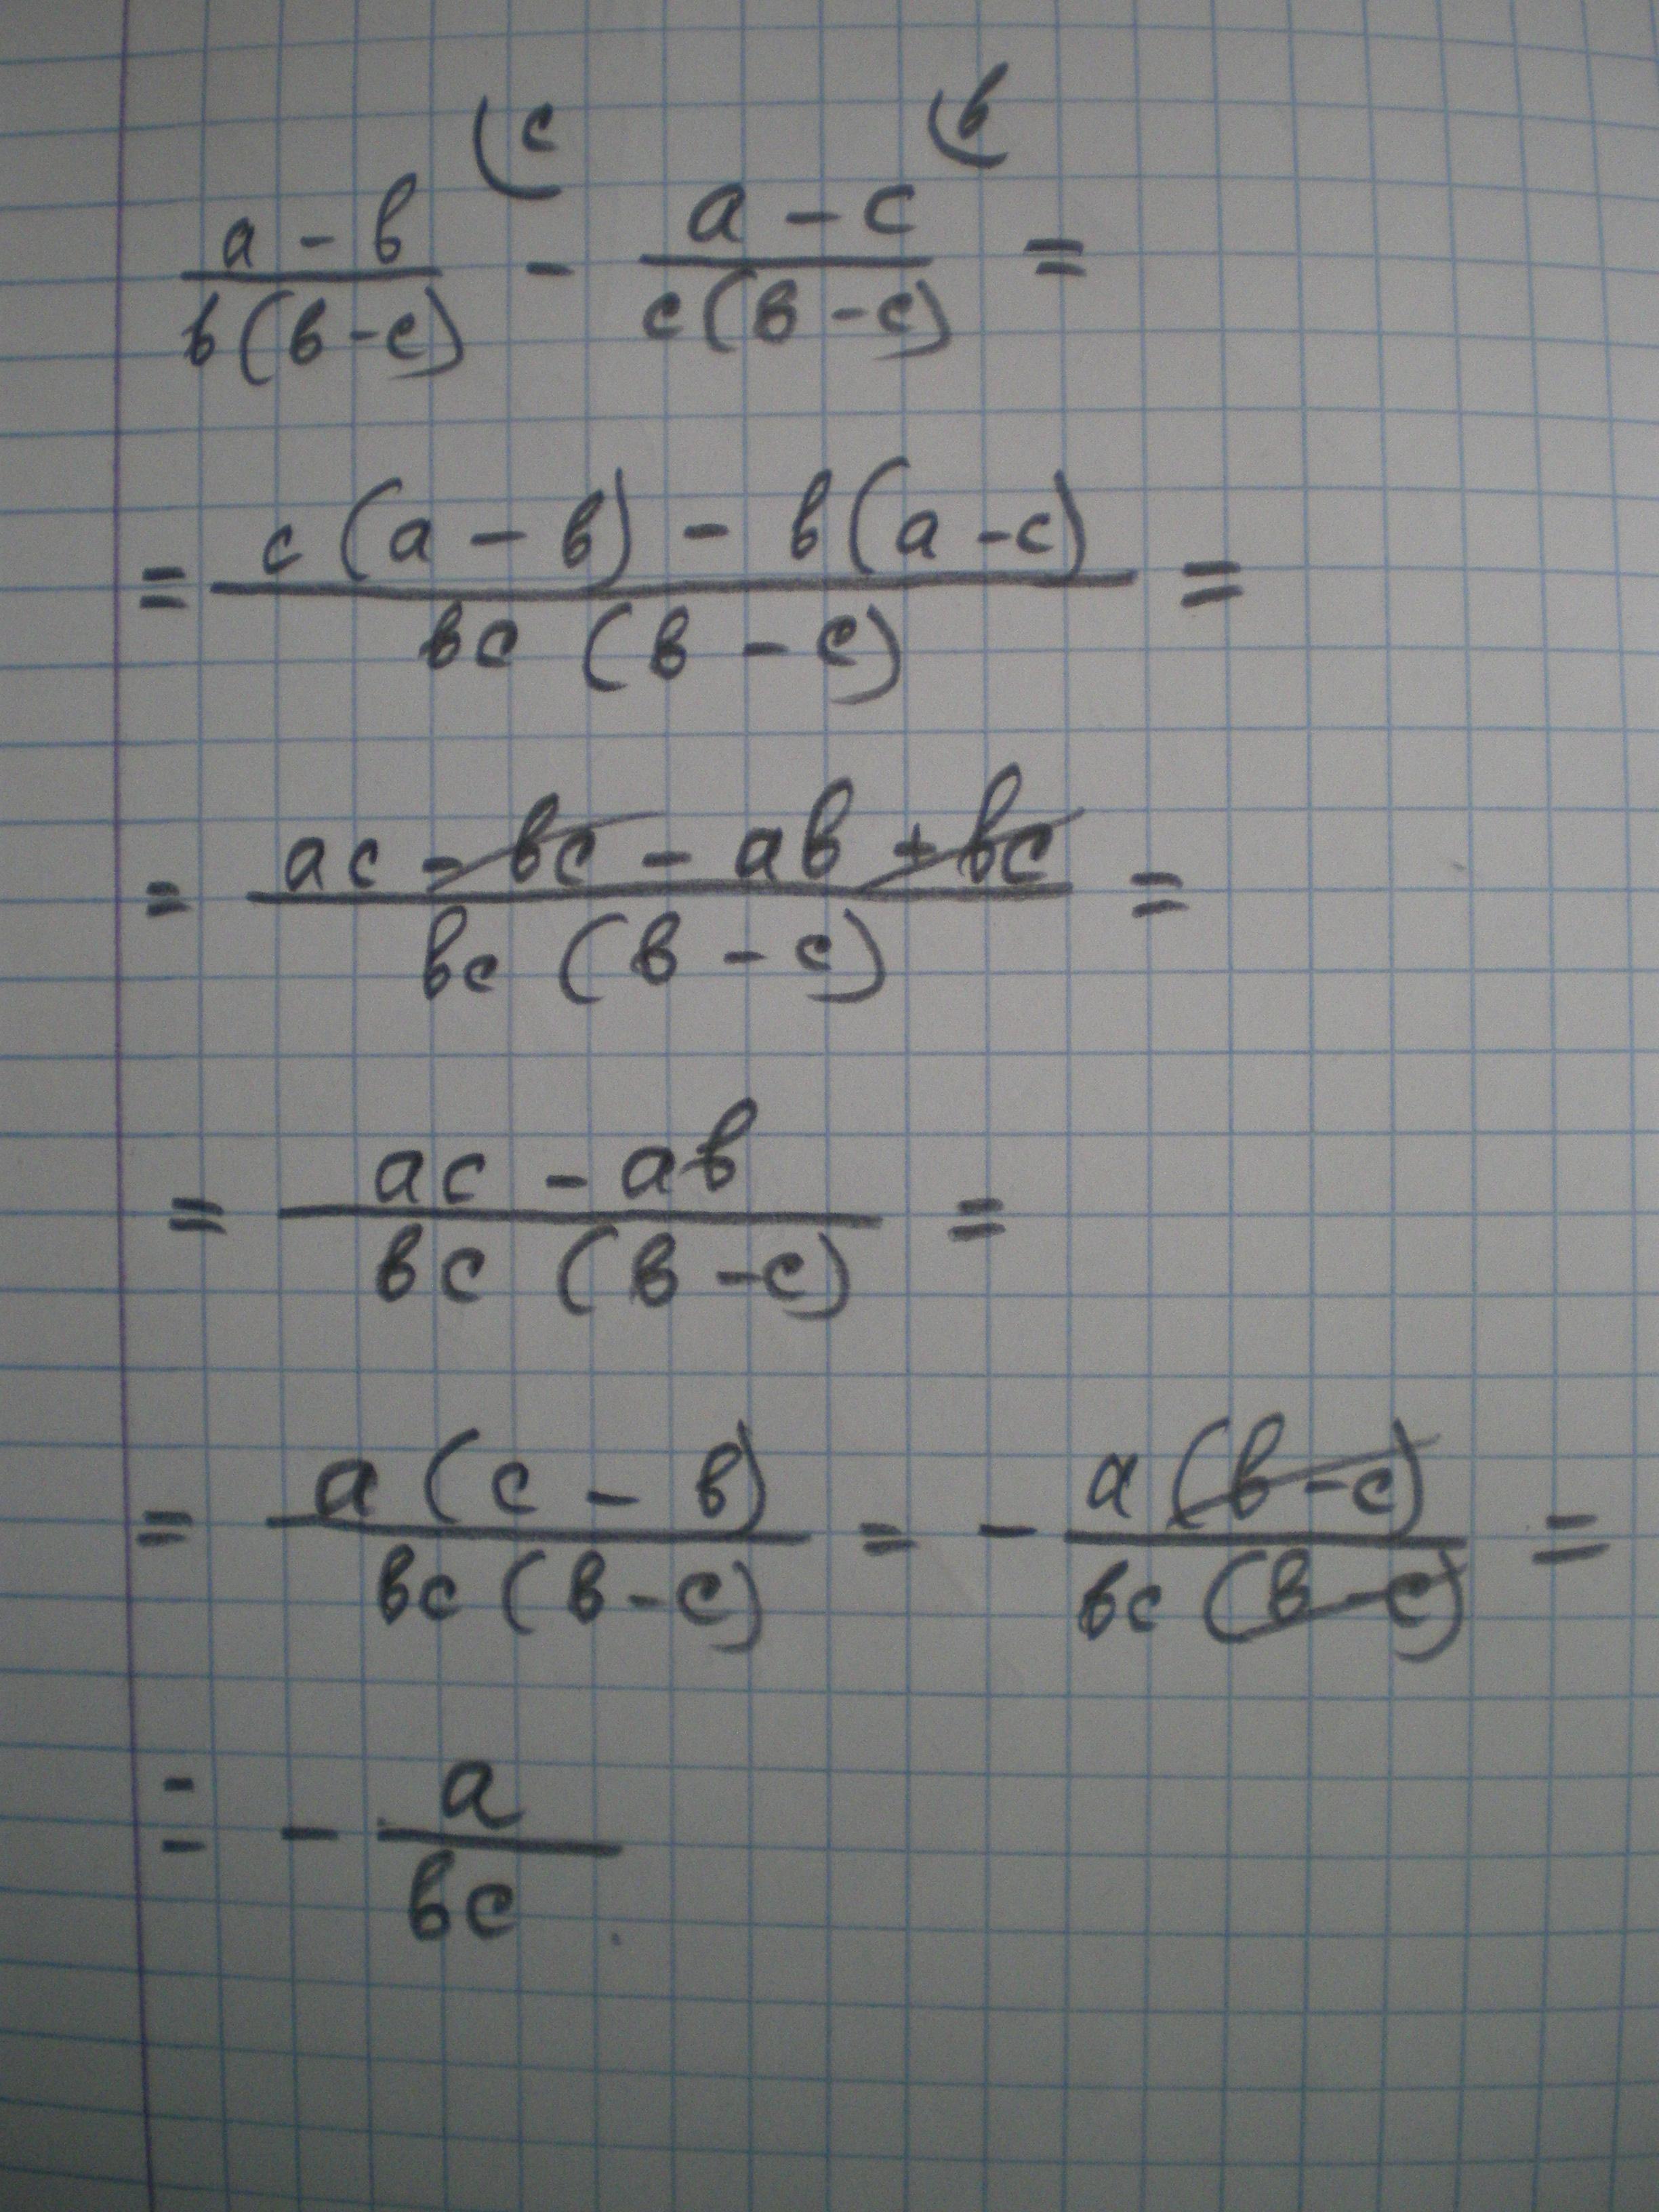 (c (b
(a - b)/(b(b - c)) - (a - c)/(c(b - c)) =
= (c(a - b) - b(a - c))/(bc(b - c)) =
= (ac - bc - ab + bc)/(bc(b - c)) =
= (ac - ab)/(bc(b - c)) =
= (a(c - b))/(bc(b - c)) = - (a(b - c))/(bc(b - c)) =
= - a/(bc)